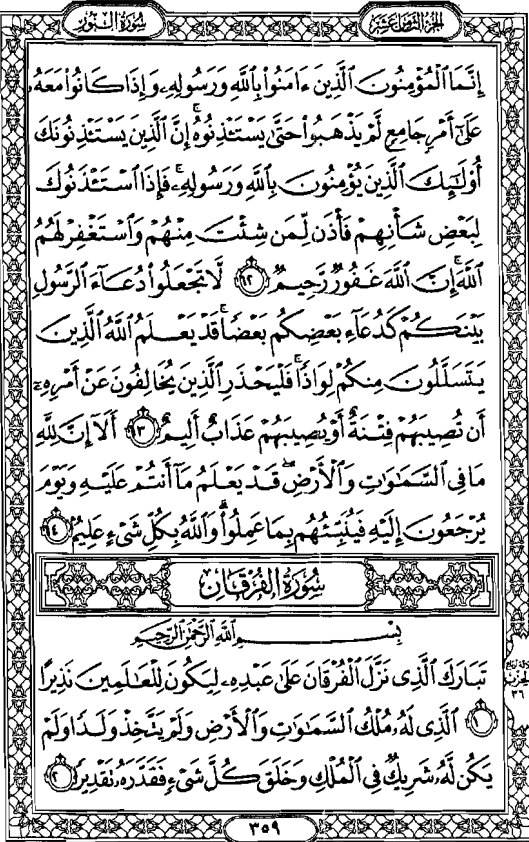 سُورَةُ النُّورِ
الجُزْءُ الثَّامِنَ عَشَرَ
إِنَّمَا الْمُؤْمِنُونَ الَّذِينَ ءَامَنُوا۟ بِاللَّهِ وَرَسُولِهِۦ وَإِذَا كَانُوا۟ مَعَهُۥ
عَلَىٰٓ أَمْرٍ جَامِعٍ لَّمْ يَذْهَبُوا۟ حَتَّىٰ يَسْتَـْٔذِنُوهُ ۚ إِنَّ الَّذِينَ يَسْتَـْٔذِنُونَكَ
أُو۟لَـٰٓئِكَ الَّذِينَ يُؤْمِنُونَ بِاللَّهِ وَرَسُولِهِۦ ۚ فَإِذَا اسْتَـْٔذَنُوكَ
لِبَعْضِ شَأْنِهِمْ فَأْذَن لِّمَن شِئْتَ مِنْهُمْ وَاسْتَغْفِرْ لَهُمُ
اللَّهَ ۚ إِنَّ اللَّهَ غَفُورٌ رَّحِيمٌ ٦٢ لَّا تَجْعَلُوا۟ دُعَآءَ الرَّسُولِ
بَيْنَكُمْ كَدُعَآءِ بَعْضِكُم بَعْضًا ۚ قَدْ يَعْلَمُ اللَّهُ الَّذِينَ
يَتَسَلَّلُونَ مِنكُمْ لِوَاذًا ۚ فَلْيَحْذَرِ الَّذِينَ يُخَالِفُونَ عَنْ أَمْرِهِۦٓ
أَن تُصِيبَهُمْ فِتْنَةٌ أَوْ يُصِيبَهُمْ عَذَابٌ أَلِيمٌ ٦٣ أَلَآ إِنَّ لِلَّهِ
مَا فِي السَّمَـٰوَٰتِ وَالْأَرْضِ ۖ قَدْ يَعْلَمُ مَآ أَنتُمْ عَلَيْهِ وَيَوْمَ
يُرْجَعُونَ إِلَيْهِ فَيُنَبِّئُهُم بِمَا عَمِلُوا۟ ۗ وَاللَّهُ بِكُلِّ شَىْءٍ عَلِيمٌ ٦٤
سُورَةُ الفُرْقَانِ
بِسْمِ اللَّهِ الرَّحْمَٰنِ الرَّحِيمِ
تَبَارَكَ الَّذِى نَزَّلَ الْفُرْقَانَ عَلَىٰ عَبْدِهِۦ لِيَكُونَ لِلْعَـٰلَمِينَ نَذِيرًا
١ الَّذِى لَهُۥ مُلْكُ السَّمَـٰوَٰتِ وَالْأَرْضِ وَلَمْ يَتَّخِذْ وَلَدًا وَلَمْ
يَكُن لَّهُۥ شَرِيكٌ فِى الْمُلْكِ وَخَلَقَ كُلَّ شَىْءٍ فَقَدَّرَهُۥ تَقْدِيرًا ٢
٣٥٩